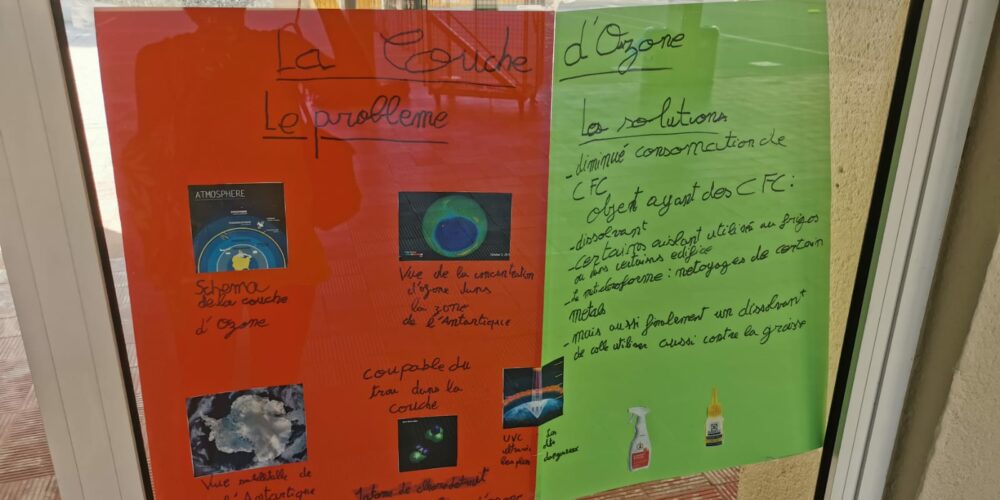 La Couche d'Ozone
Le probleme
ATMOSPHERE
Schema
de la couche
d'Ozone
Vue de la concentration
d'ozone dans
la zone
de l'Antartique
coupable du
trou dans la
couche
UVC
Vue satelitale de
l'Antartique
Les solutions
- diminué consomation de
CFC
objent ayant des CFC :
- dissolvant
- certains isolant utilisé au frigos
ou dans certains edifice
- le : netoyages de certain
métals
- mais aussi finalement un dissolvant
de colle utiliser aussi contre la graisse